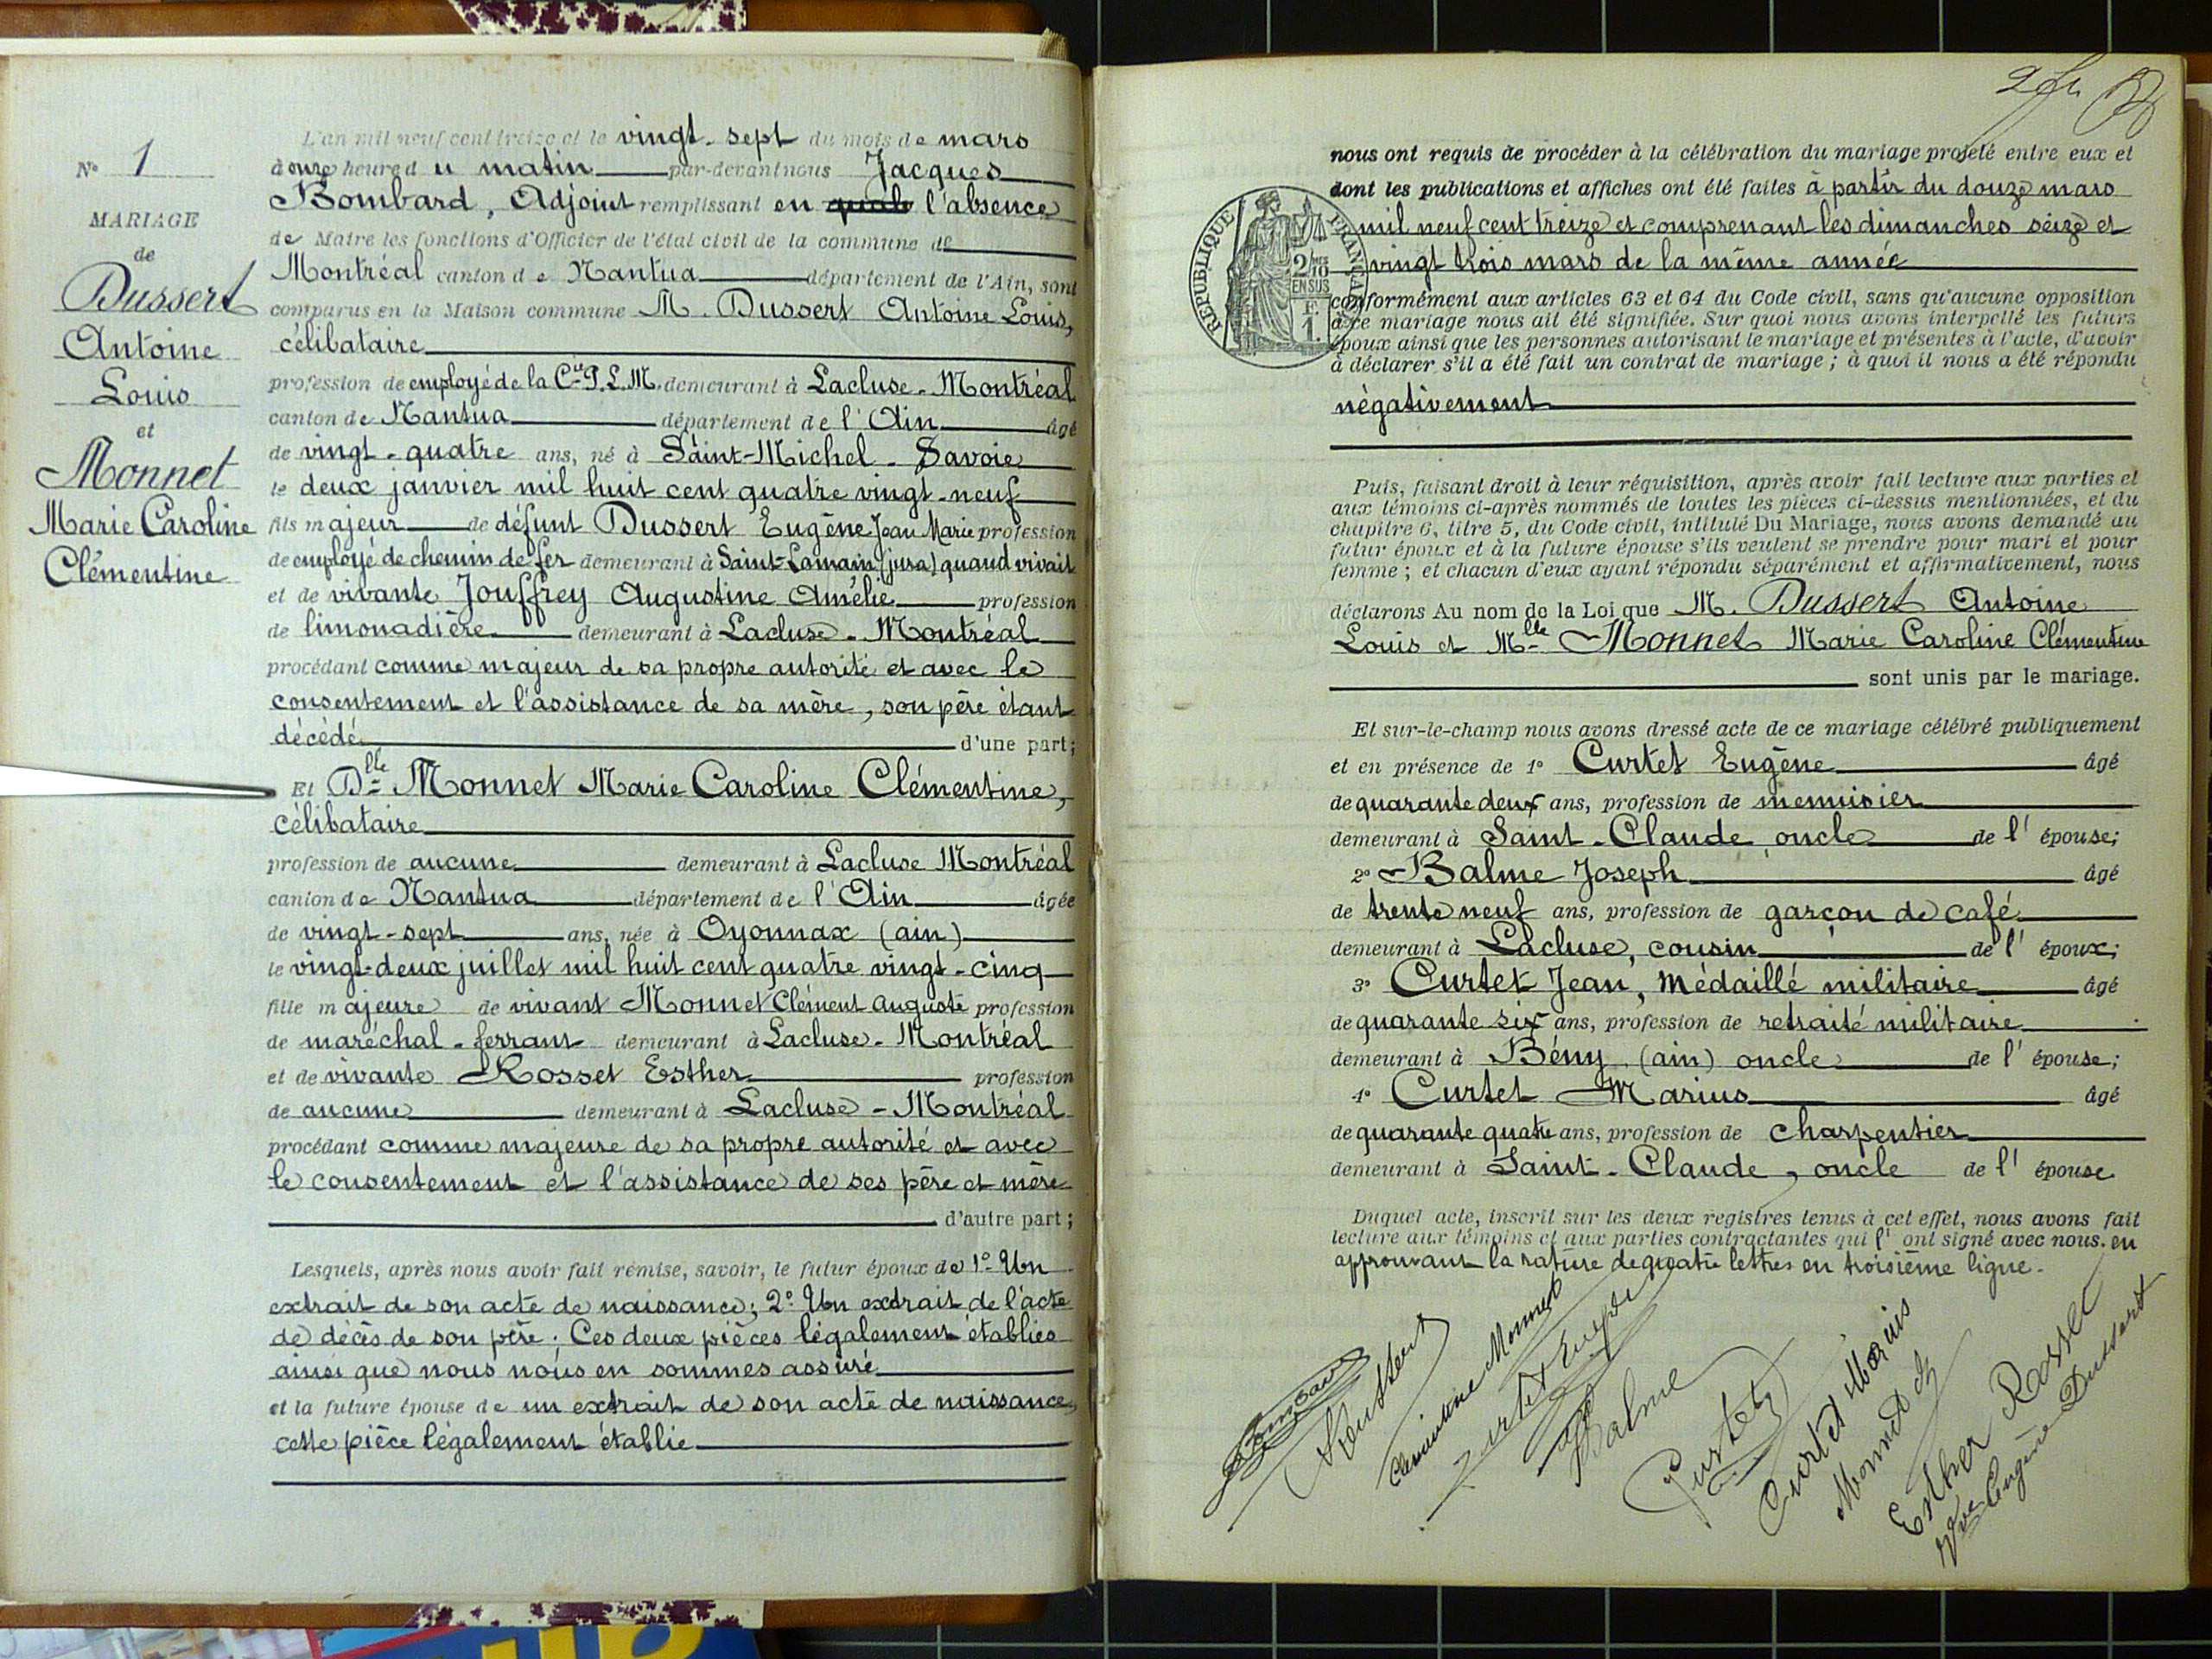 N° 1
MARIAGE
de
Dussert
Antoine
Louis
et
Monnet
Marie Caroline
Clémentine
L'an mil neuf cent treize et le vingt-sept du mois de mars
à onze heures du matin par-devant nous Jacques
Bombard, Adjoint remplissant en l'absence
de Maire les fonctions d'Officier de l'état civil de la commune de
Montréal canton de Nantua département de l'Ain, sont
comparus en la Maison commune M. Dussert Antoine Louis,
célibataire
profession de employé de la Cie P. L. M. demeurant à Lacluse-Montréal
canton de Nantua département de l'Ain âgé
de vingt-quatre ans, né à Saint-Michel-Savoie
le deux janvier mil huit cent quatre vingt-neuf
fils majeur de défunt Dussert Eugène Jean Marie profession
de employé de chemin de fer demeurant à Saint-Lamain (jura) quand vivait
et de vivante Jouffrey Augustine Amélie profession
de limonadière demeurant à Lacluse-Montréal
procédant comme majeur de sa propre autorité et avec le
consentement et l'assistance de sa mère, son père étant
décédé d'une part;
Et Dlle Monnet Marie Caroline Clémentine,
célibataire
profession de aucune demeurant à Lacluse Montréal
canton de Nantua département de l'Ain âgée
de vingt-sept ans, née à Oyonnax (ain)
le vingt-deux juillet mil huit cent quatre vingt-cinq
fille majeure de vivant Monnet Clément Auguste profession
de maréchal-ferrant demeurant à Lacluse-Montréal
et de vivante Rosset Esther profession
de aucune demeurant à Lacluse-Montréal
procédant comme majeure de sa propre autorité et avec
le consentement et l'assistance de ses père et mère
d'autre part;
Lesquels, après nous avoir fait remise, savoir, le futur époux de 1° Un
extrait de son acte de naissance; 2° Un extrait de l'acte
de décès de son père. Ces deux pièces légalement établies
ainsi que nous nous en sommes assuré
et la future épouse de un extrait de son acte de naissance,
cette pièce légalement établie
nous ont requis de procéder à la célébration du mariage projeté entre eux et
dont les publications et affiches ont été faites à partir du douze mars
mil neuf cent treize et comprenant les dimanches seize et
vingt trois mars de la même année
REPUBLIQUE FRANÇAISE
2/10
EN SUS
F.
1.
conformément aux articles 63 et 64 du Code civil, sans qu'aucune opposition
à ce mariage nous ait été signifiée. Sur quoi nous avons interpellé les futurs
époux ainsi que les personnes autorisant le mariage et présentes à l'acte, d'avoir
à déclarer s'il a été fait un contrat de mariage; à quoi il nous a été répondu
négativement
Puis, faisant droit à leur réquisition, après avoir fait lecture aux parties et
aux témoins ci-après nommés de toutes les pièces ci-dessus mentionnées, et du
chapitre 6, titre 5, du Code civil, intitulé Du Mariage, nous avons demandé au
futur époux et à la future épouse s'ils veulent se prendre pour mari et pour
femme; et chacun d'eux ayant répondu séparément et affirmativement, nous
déclarons Au nom de la Loi que M. Dussert Antoine
Louis et Mlle Monnet Marie Caroline Clémentine
sont unis par le mariage.
Et sur-le-champ nous avons dressé acte de ce mariage célébré publiquement
et en présence de 1° Curtet Eugène âgé
de quarante deux ans, profession de menuisier
demeurant à Saint-Claude, oncle de l'épouse;
2° Balme Joseph âgé
de trente neuf ans, profession de garçon de café
demeurant à Lacluse, cousin de l'époux;
3° Curtet Jean, Médaillé militaire âgé
de quarante six ans, profession de retraité militaire
demeurant à Bény (ain) oncle de l'épouse;
4° Curtet Marius âgé
de quarante quatre ans, profession de charpentier
demeurant à Saint-Claude, oncle de l'épouse
Duquel acte, inscrit sur les deux registres tenus à cet effet, nous avons fait
lecture aux témoins et aux parties contractantes qui l'ont signé avec nous. en
approuvant la rature de quatre lettres en troisième ligne.
Bombard
Dussert
Clémentine Monnet
Curtet Eugène
Balme
Curtet
Curtet Marius
Monnet
Esther Rosset
Vve Eugène Dussert